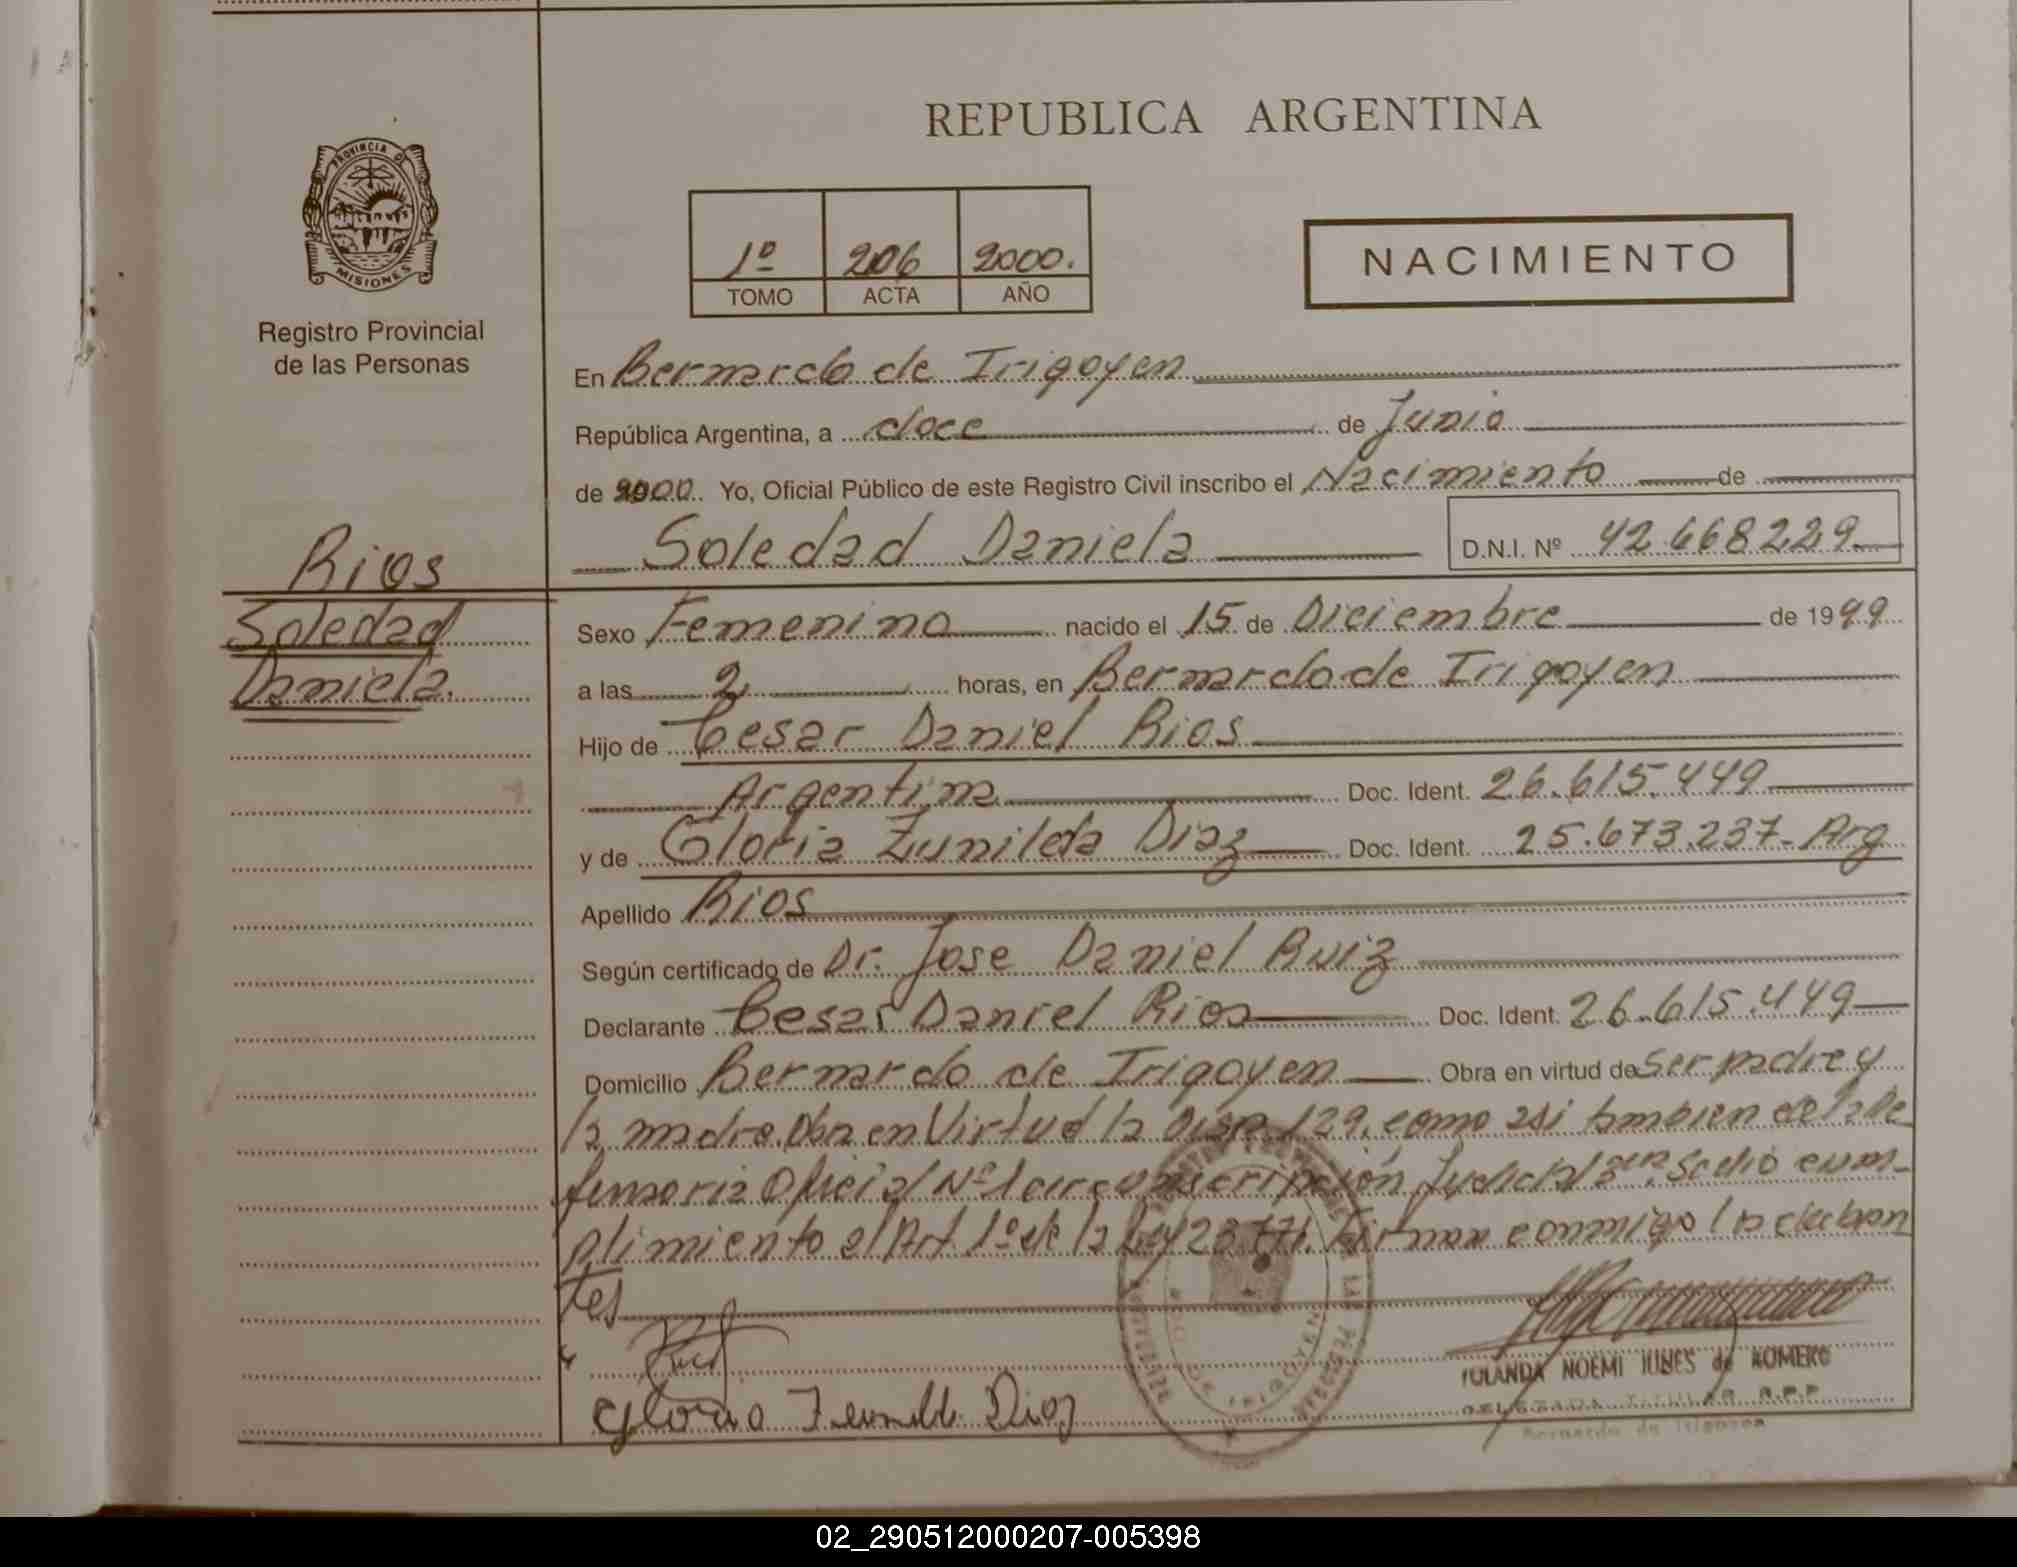 REPUBLICA ARGENTINA
PROVINCIA DE
MISIONES
Registro Provincial
de las Personas
1º 206 2000.
TOMO ACTA AÑO
NACIMIENTO
En Bernardo de Irigoyen
República Argentina, a doce de Junio
de 2000. Yo, Oficial Público de este Registro Civil inscribo el Nacimiento de
Soledad Daniela D.N.I. Nº 42.668.229
Rios
Soledad
Daniela.
Sexo Femenino nacido el 15 de Diciembre de 1999
a las 2 horas, en Bernardo de Irigoyen
Hijo de Cesar Daniel Rios
Argentina Doc. Ident. 26.615.449
y de Gloria Zunilda Diaz Doc. Ident. 25.673.237- Arg
Apellido Rios
Según certificado de Dr. Jose Daniel Ruiz
Declarante Cesar Daniel Rios Doc. Ident. 26.615.449
Domicilio Bernardo de Irigoyen Obra en virtud de Ser padre y
la madre Obra en Virtud la Disp. 129, como asi tambien de la De
fensoria Oficial Nº1 circunscripción Judicial Se dio cum-
plimiento al Art 1º de la Ley 23.771. Firman conmigo los declaran
tes
Gloria Diaz
YOLANDA NOEMI de ROMERO
DELEGADA TITULAR R.P.P.
Bernardo de Irigoyen
02_290512000207-005398